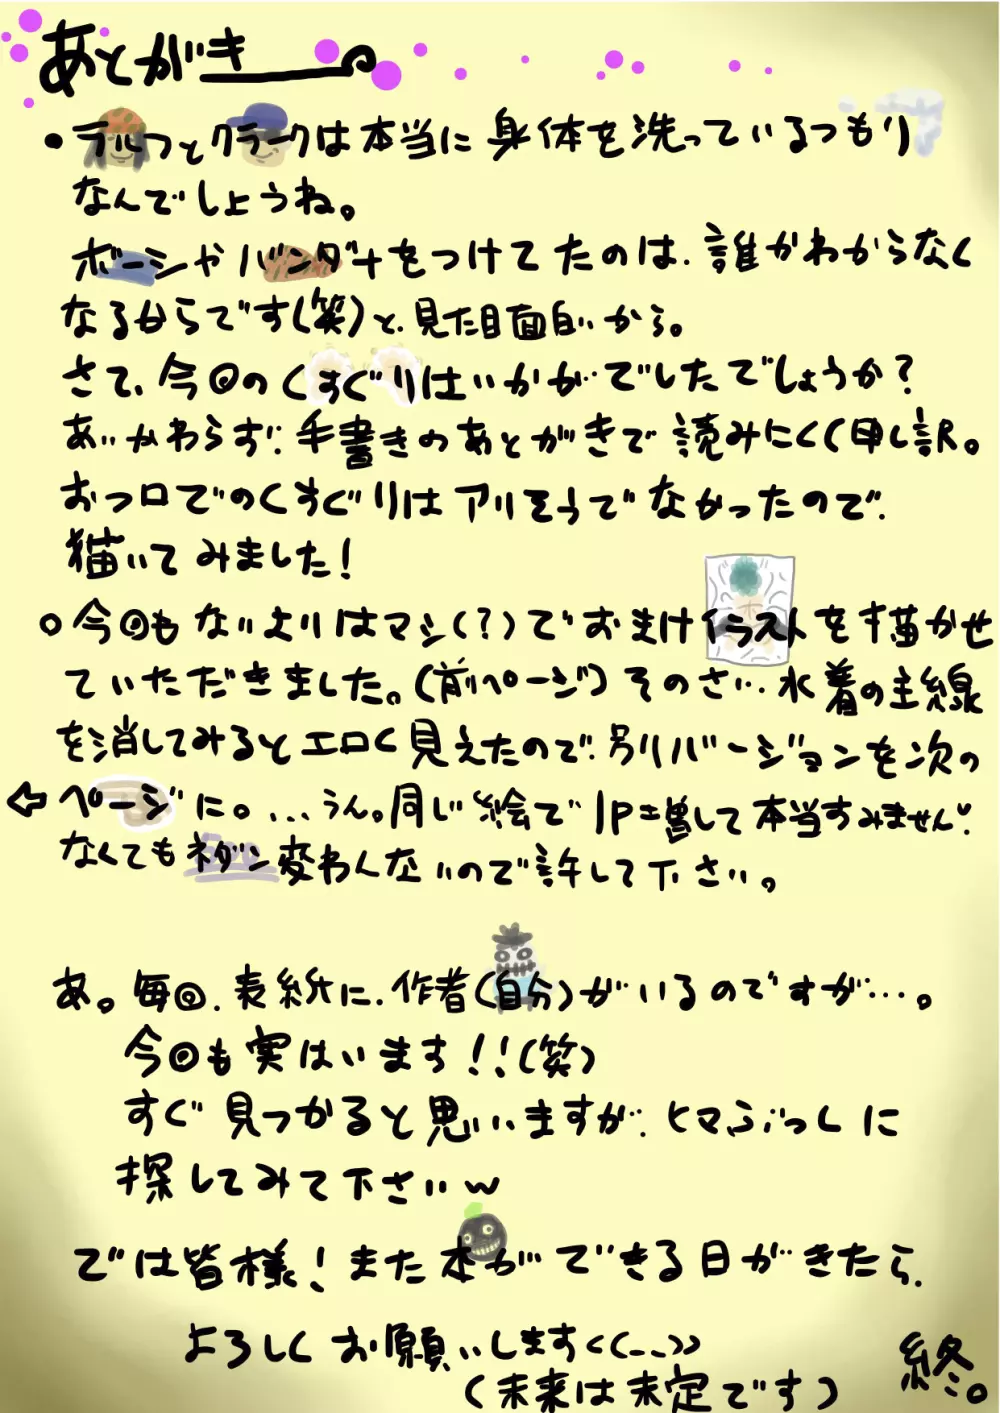 あとがき
・ラルフとクラークは本当に身体を洗っているつもり
なんでしょうね。
ボーシやバンダナをつけてたのは、誰かわからなく
なるからです(笑)と、見た目面白いから。
さて、今回のくすぐりはいかがでしたでしょうか？
あいかわらず、手書きのあとがきで読みにくく申し訳。
おフロでのくすぐりはアリそうでなかったので、
描いてみました！
○今回もないよりはマシ(？)でおまけイラストを描かせ
ていただきました。(前ページ)そのさい…水着の主線
を消してみるとエロく見えたので、別バージョンを次の
⇦ページに。...うん。同じ絵で1P増して本当すみません。
なくてもネダン変わんないので許して下さい。
あ。毎回、表紙に、作者(自分)がいるのですが…。
今回も実はいます！！(笑)
すぐ見つかると思いますが、ヒマぶっしに
探してみて下さいw
では皆様！また本ができる日がきたら、
よろしくお願いします<(__)>
(未来は未定です)
終。